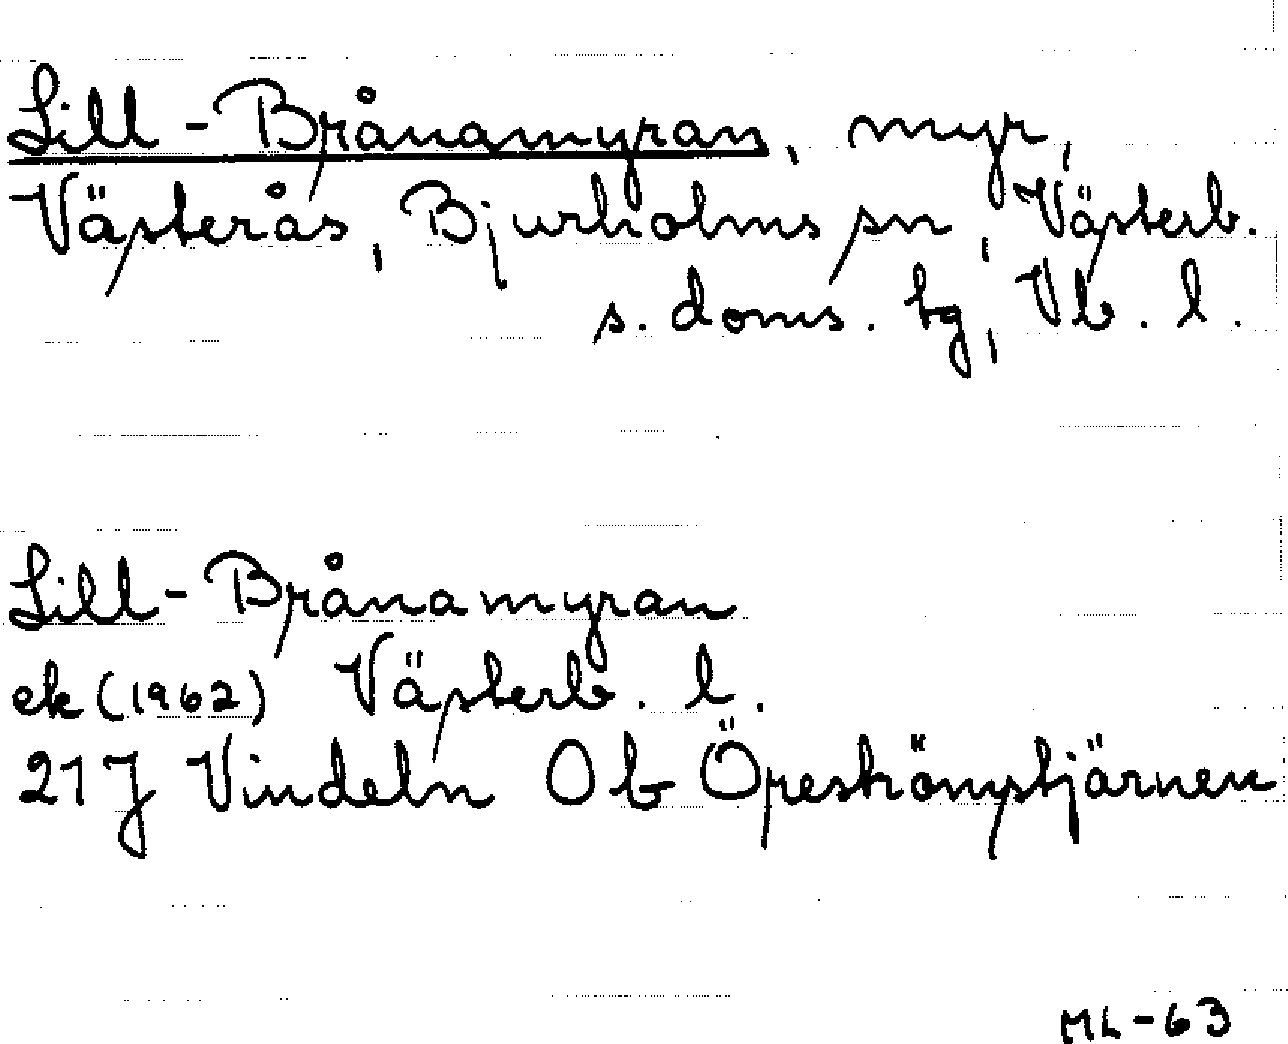 Lill-Brånamyran, myr,
Västerås, Bjurholms sn, Västerb.
s. doms. tg, Vb. l.
Lill-Brånamyran
ek (1962) Västerb. l.
21J Vindeln Ob Öreskönstjärnen
ML-63